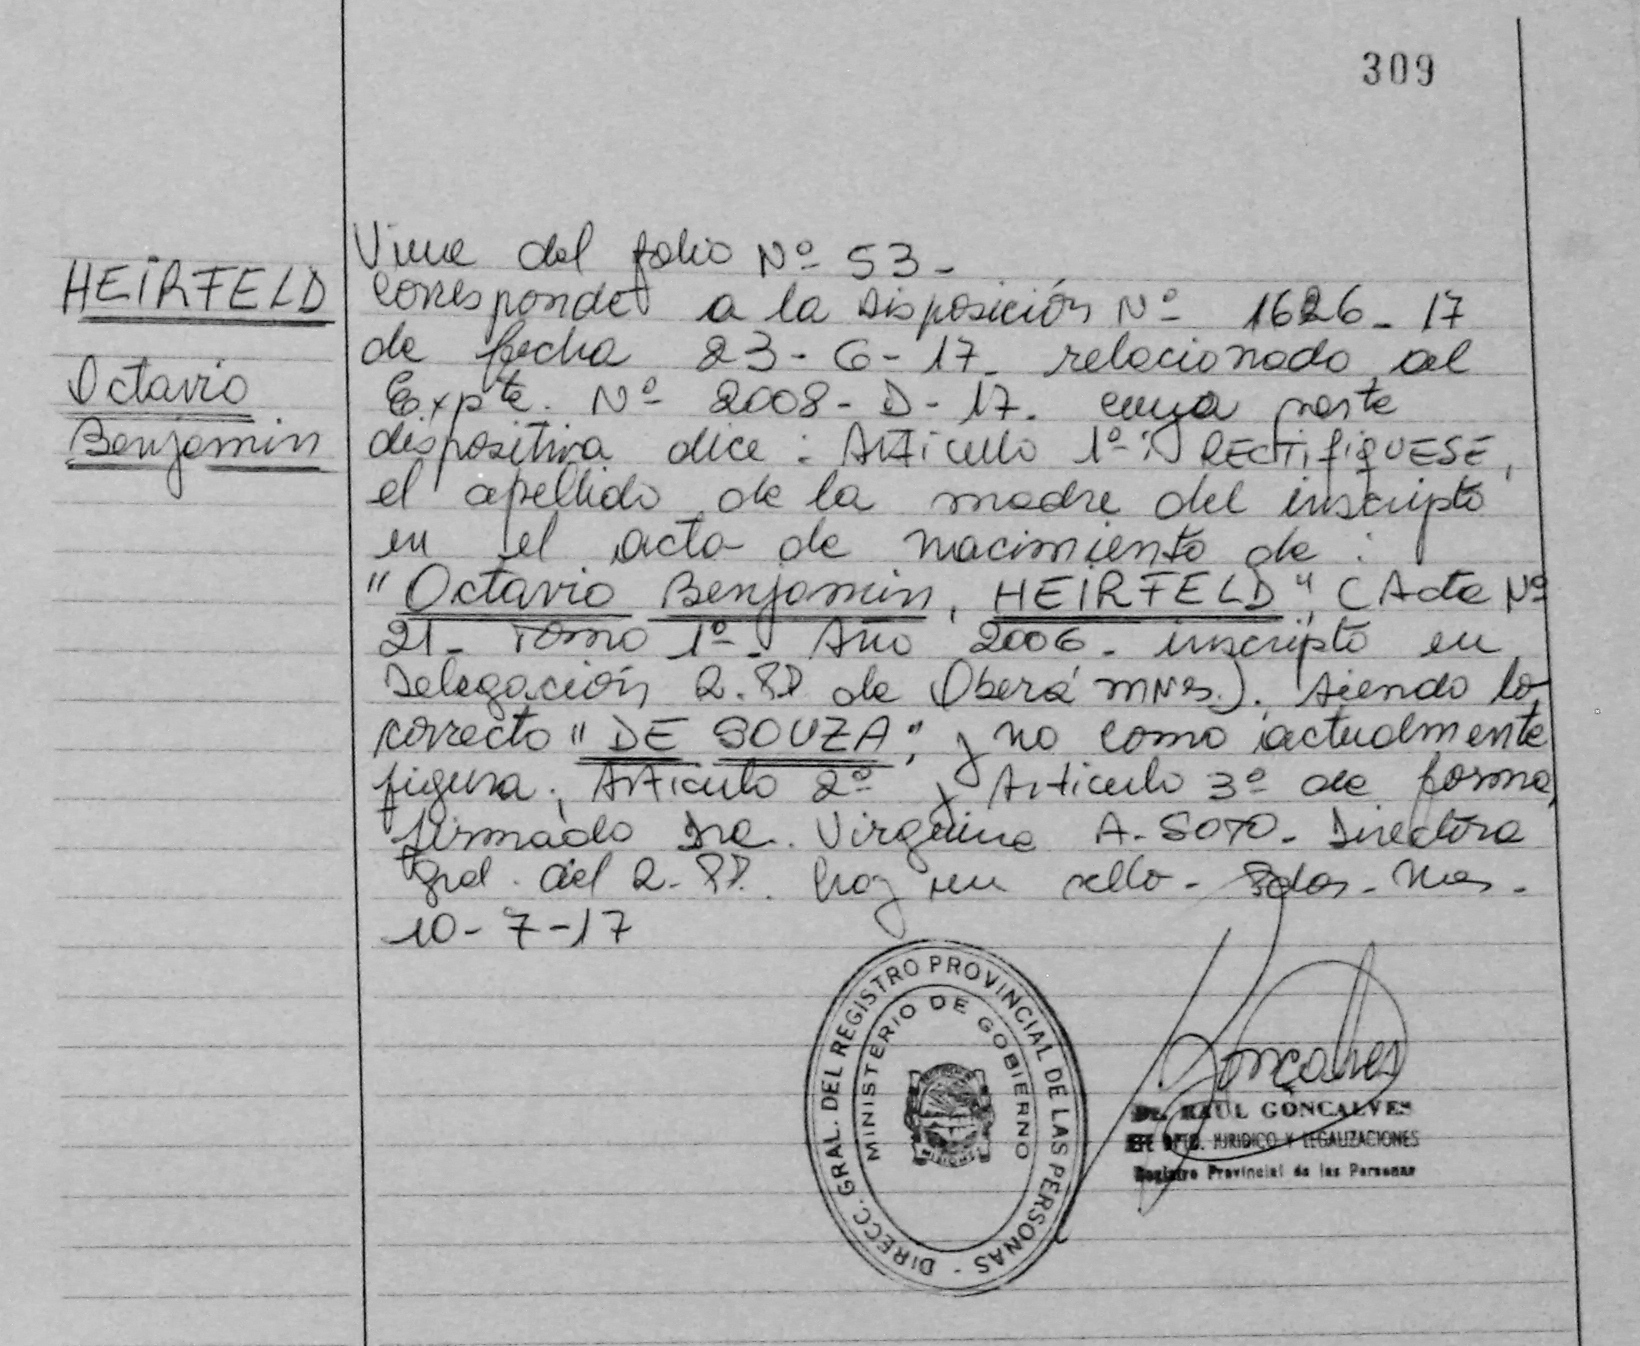 309
HEIRFELD
Octavio
Benjamin
Viene del folio Nº 53-
corresponde a la Disposición Nº 1626-17
de fecha 23-6-17- relacionado al
Expte. Nº 2008-D-17. cuya parte
dispositiva dice: Artículo 1º: RECTIFIQUESE,
el apellido de la madre del inscripto
en el acta de nacimiento de:
"Octavio Benjamin, HEIRFELD", (Acta Nº
21- Tomo 1º- Año 2006- inscripto en
Delegación R.PP de Oberá Mnes.). siendo lo
correcto "DE SOUZA", y no como actualmente
figura. Artículo 2º y Artículo 3º de forma,
firmado Dra. Virginia A. SOTO- Directora
Gral. del R.PP. hay un sello- Pdas- Mnes-
10-7-17
DIRECC. GRAL. DEL REGISTRO PROVINCIAL DE LAS PERSONAS -
MINISTERIO DE GOBIERNO
MISIONES
Goncalves
Dr. RAUL GONCALVES
JEFE DPTO. JURIDICO Y LEGALIZACIONES
Registro Provincial de las Personas